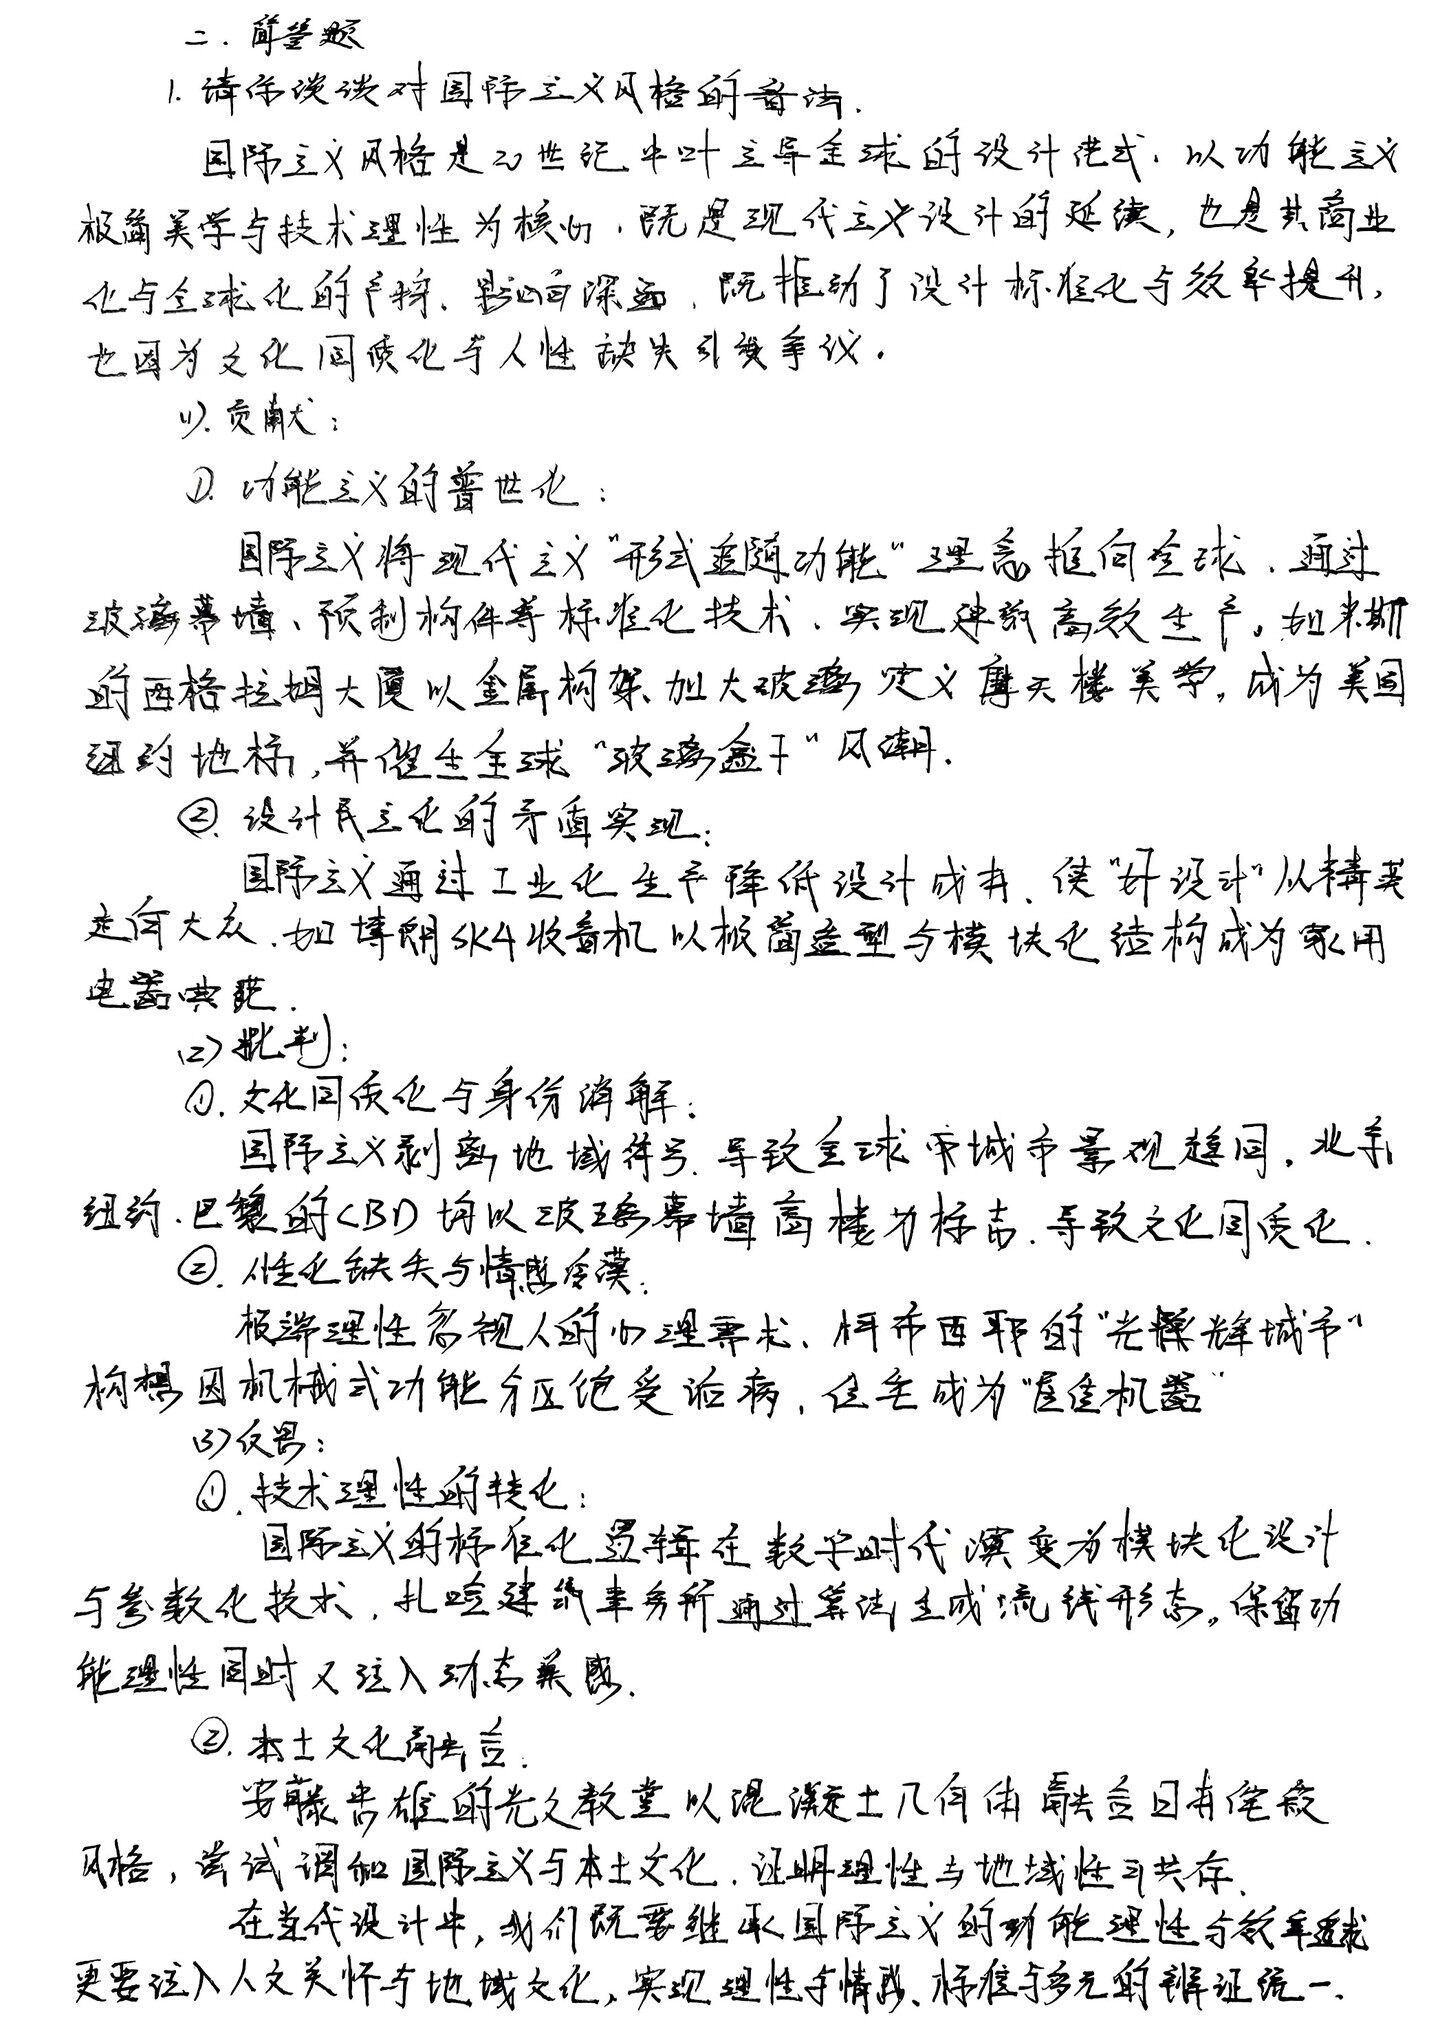 二.简答题
1.请你谈谈对国际主义风格的看法.
国际主义风格是20世纪中叶主导全球的设计范式,以功能主义
极简美学与技术理性为核心,既是现代主义设计的延续,也是其商业
化与全球化的产物.影响深远,既推动了设计标准化与效率提升,
也因为文化同质化与人性缺失引发争议.
(1).贡献:
①.功能主义的普世化:
国际主义将现代主义"形式追随功能"理念推向全球.通过
玻璃幕墙、预制构件等标准化技术.实现建筑高效生产。如米斯
的西格拉姆大厦以金属构架、加大玻璃定义摩天楼美学,成为美国
纽约地标,并催生全球"玻璃盒子"风潮.
②.设计民主化的矛盾实现:
国际主义通过工业化生产降低设计成本、使"好设计"从精英
走向大众.如博朗SK4收音机以极简造型与模块化结构成为家用
电器典范.
(2)批判:
①.文化同质化与身份消解:
国际主义剥离地域符号.导致全球城市景观趋同。北京
纽约.巴黎的CBD均以玻璃幕墙高楼为标志.导致文化同质化.
②.人性化缺失与情感冷漠.
极端理性忽视人的心理需求.柯布西耶的"光辉城市"
构想因机械式功能分区饱受诟病,住宅成为"居住机器"
(3)反思:
①.技术理性的转化:
国际主义的标准化逻辑在数字时代演变为模块化设计
与参数化技术.扎哈建筑事务所通过算法生成流线形态。保留功
能理性同时又注入动态美感.
②.本土文化融合.
安藤忠雄的光之教堂以混凝土几何体融合日本侘寂
风格,尝试调和国际主义与本土文化.证明理性与地域性可共存.
在当代设计中,我们既要继承国际主义的功能理性与效率追求
更要注入人文关怀与地域文化,实现理性与情感、标准与多元的辨证统一.